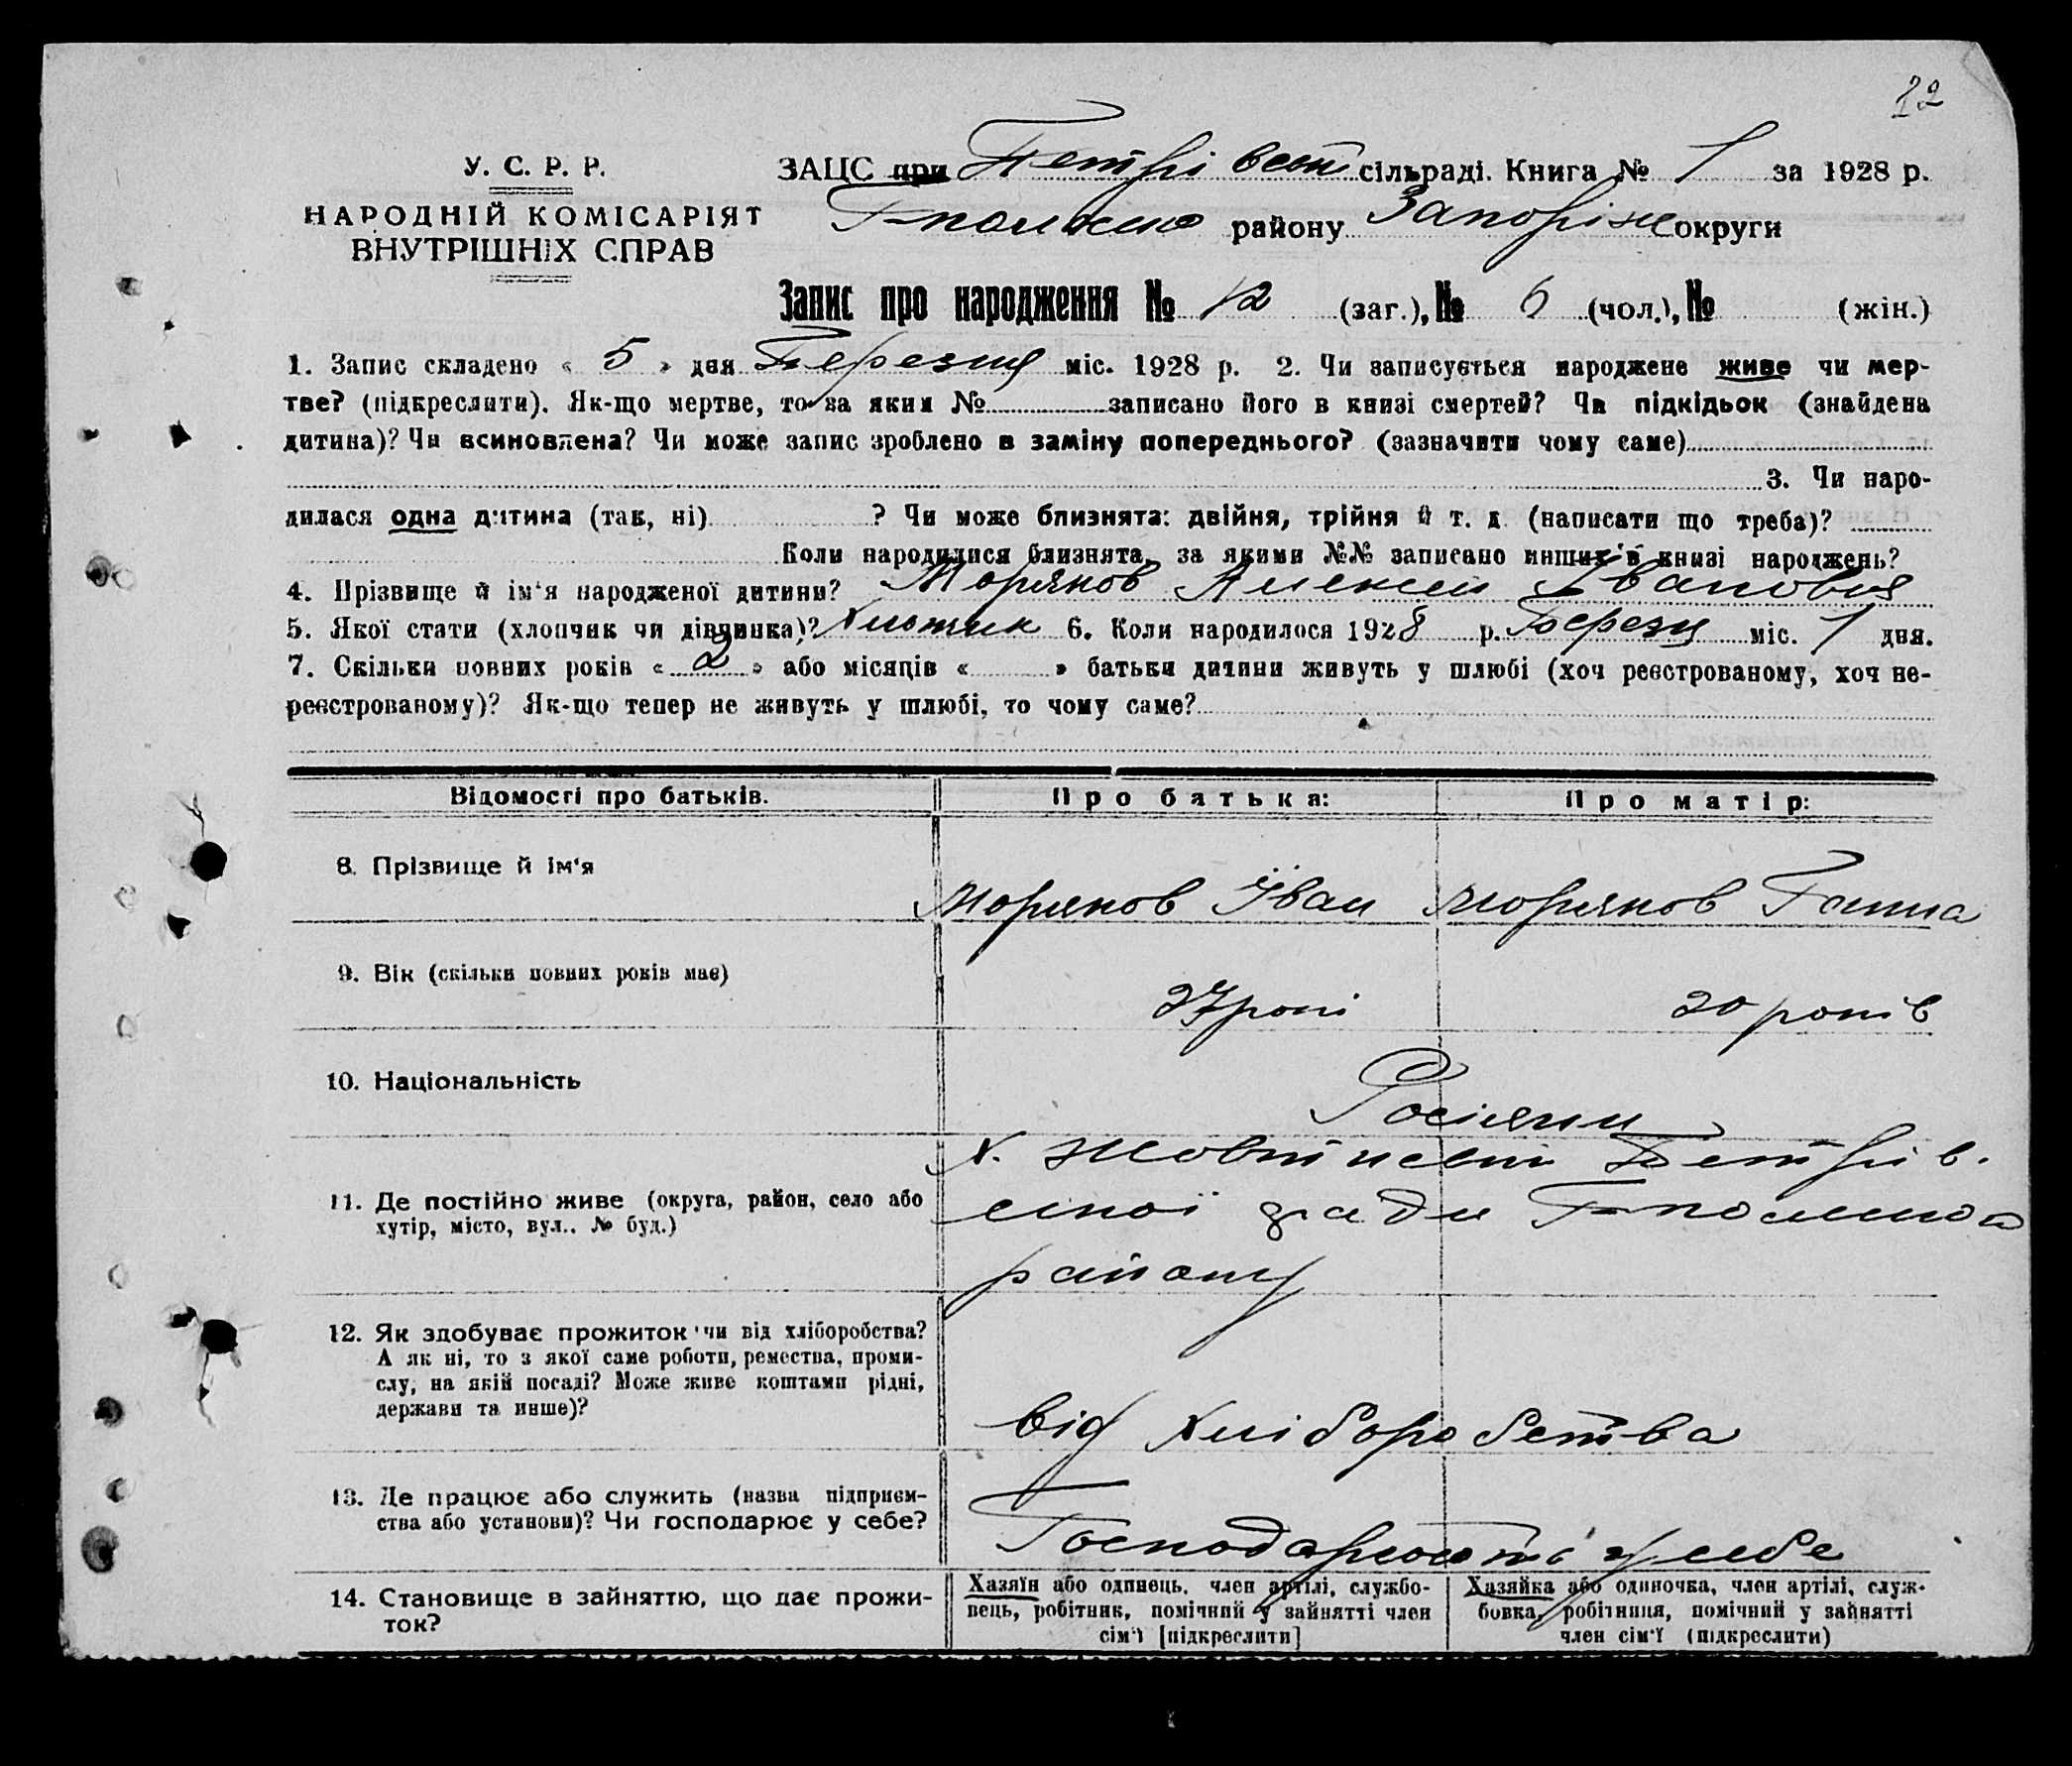 12
У. С. Р. Р.
НАРОДНІЙ КОМІСАРІЯТ
ВНУТРІШНІХ СПРАВ
ЗАЦС при Петрівськ сільраді. Книга № 1 за 1928 р.
району Запоріж округи
Запис про народження № 12 (заг.), № 6 (чол.), № (жін.)
1. Запис складено « 5 » дня Березня міс. 1928 р. 2. Чи записується народжене живе чи мер-
тве? (підкреслити). Як-що мертве, то за яким № записано його в книзі смертей? Чи підкідьок (знайдена
дитина)? Чи всиновлена? Чи може запис зроблено в заміну попереднього? (зазначити чому саме)
3. Чи наро-
дилася одна дитина (так, ні) ? Чи може близнята: двійня, трійня й т. д. (написати що треба)?
Коли народилися близнята, за якими №№ записано инших в книзі народжень?
4. Прізвище й ім'я народженої дитини? Моряков Алексей Іванович
5. Якої стати (хлопчик чи дівчинка)? Хлопчик 6. Коли народилося 1928 р. Березня міс. 1 дня.
7. Скільки повних років « 2 » або місяців « » батьки дитини живуть у шлюбі (хоч реєстрованому, хоч не-
реєстрованому)? Як-що тепер не живуть у шлюбі, то чому саме?
Відомості про батьків. Про батька: Про матір:
8. Прізвище й ім'я Моряков Іван Моряков Ганна
9. Вік (скільки повних років має) 27 рокі 20 років
10. Національність Росіяни
11. Де постійно живе (округа, район, село або
хутір, місто, вул.. № буд.)
Х. Петрів.
ської ради
району
12. Як здобуває прожиток чи від хліборобства?
А як ні, то з якої саме роботи, ремества, проми-
слу, на якій посаді? Може живе коштами рідні,
держави та инше)?
від Хліборобства
13. Де працює або служить (назва підприєм-
ства або установи)? Чи господарює у себе?
Господарюють у себе
14. Становище в зайняттю, що дає прожи-
ток?
Хазяїн або одинець, член артілі, службо-
вець, робітник, помічний у зайнятті член
сім'ї [підкреслити]
Хазяйка або одиночка, член артілі, служ-
бовка, робітниця, помічний у зайнятті
член сім'ї (підкреслити)